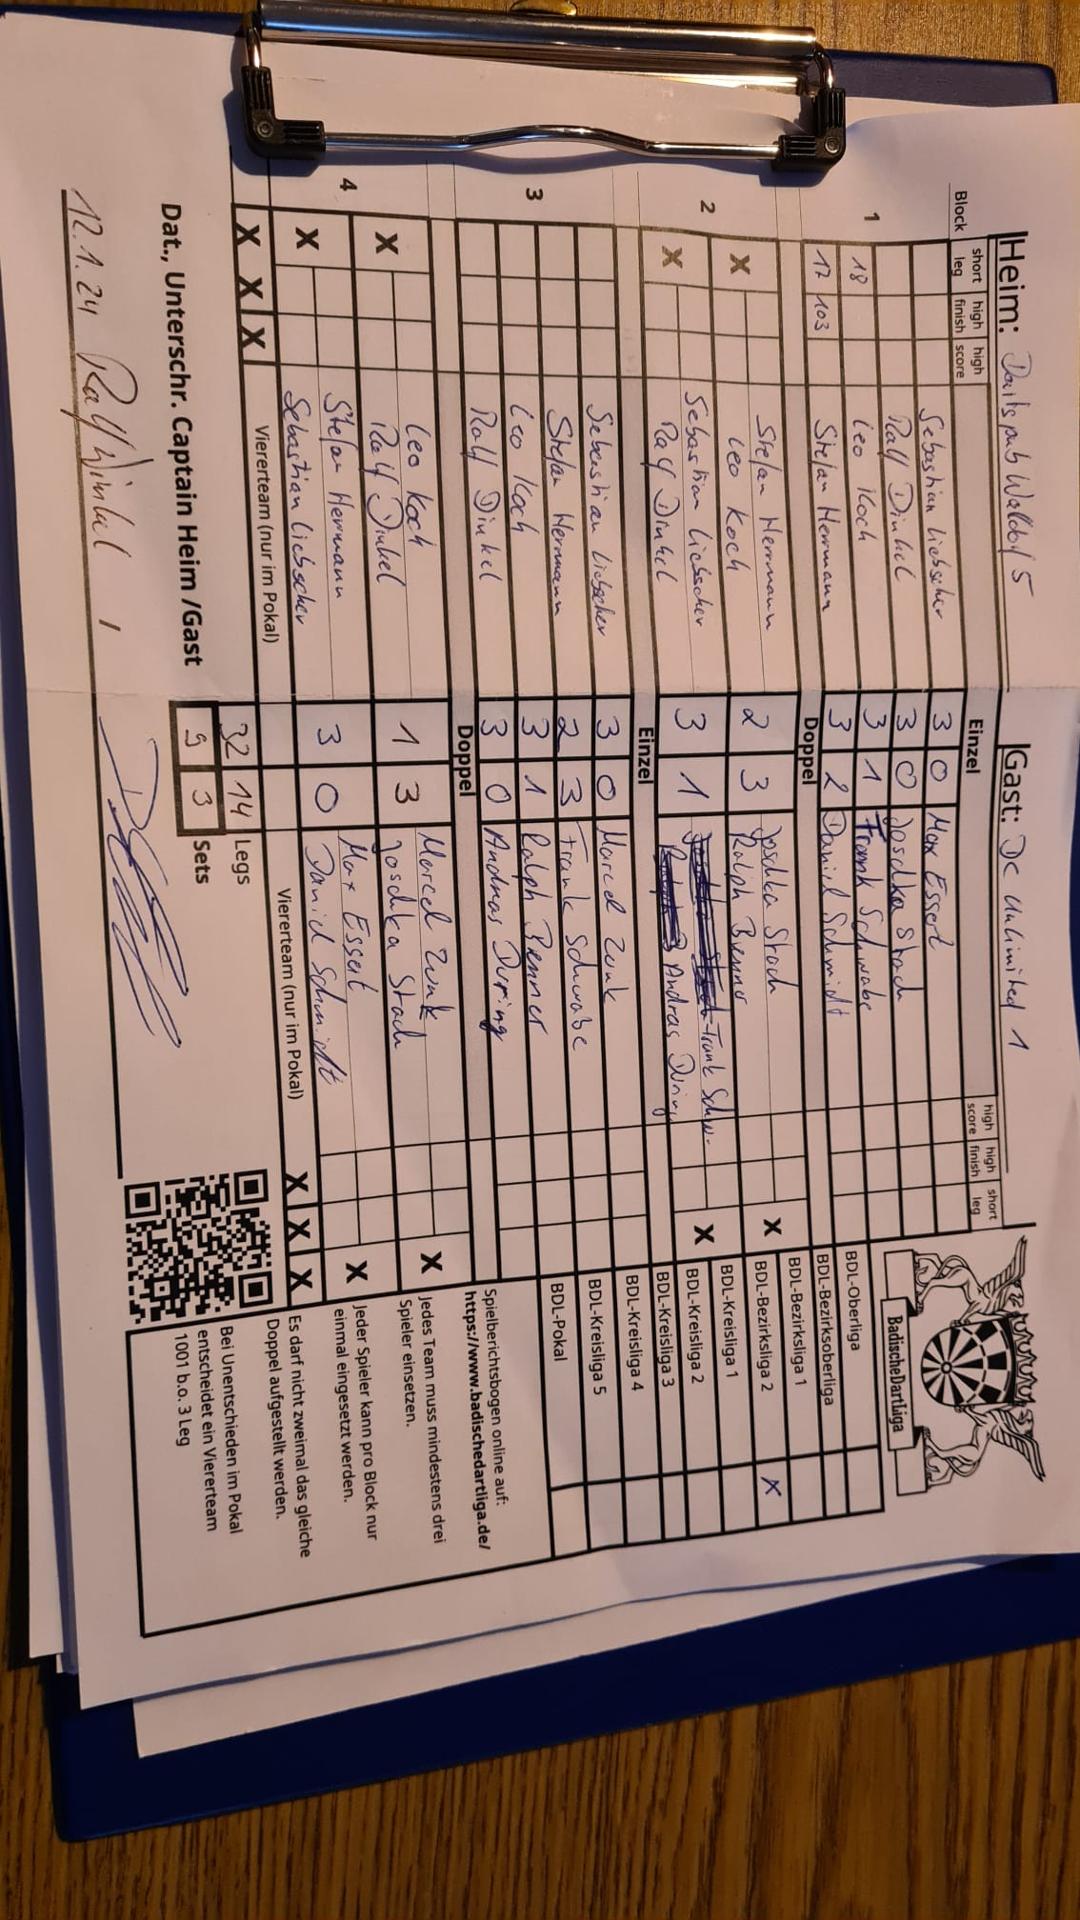 Heim: Dartspub Walldorf 5
Gast: DC Unlimited 1
BadischeDartLiga
Block short leg high finish high score Einzel high score high finish short leg
1
Sebastian Liebscher 3 0 Max Essert
Ralf Dinkel 3 0 Joschka Stach
18 Leo Koch 3 1 Frank Schwabe
17 103 Stefan Hermann 3 2 David Schmidt
Doppel
2
X Stefan Herrmann 2 3 Joschka Stach X
Leo Koch Ralph Benner
X Sebastian Liebscher 3 1 Frank Schw. X
Ralf Dinkel Andras Düring
Einzel
3
Sebastian Liebscher 3 0 Marcel Zunk
Stefan Hermann 2 3 Frank Schwabe
Leo Koch 3 1 Ralph Benner
Ralf Dinkel 3 0 Andras Düring
Doppel
4
X Leo Koch 1 3 Marcel Zunk X
Ralf Dinkel Joschka Stach
X Stefan Hermann 3 0 Max Essert X
Sebastian Liebscher David Schmidt
X X X Viererteam (nur im Pokal) Viererteam (nur im Pokal) X X X
32 14 Legs
5 3 Sets
Dat., Unterschr. Captain Heim /Gast
12.1.24 Ralf Dinkel /
BDL-Oberliga
BDL-Bezirksoberliga
BDL-Bezirksliga 1
BDL-Bezirksliga 2 X
BDL-Kreisliga 1
BDL-Kreisliga 2
BDL-Kreisliga 3
BDL-Kreisliga 4
BDL-Kreisliga 5
BDL-Pokal
Spielberichtsbogen online auf:
https://www.badischedartliga.de/
Jedes Team muss mindestens drei
Spieler einsetzen.
Jeder Spieler kann pro Block nur
einmal eingesetzt werden.
Es darf nicht zweimal das gleiche
Doppel aufgestellt werden.
Bei Unentschieden im Pokal
entscheidet ein Viererteam
1001 b.o. 3 Leg